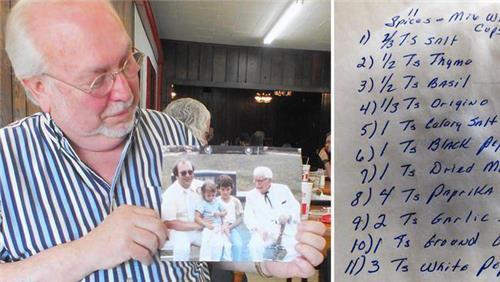 11
Spices - Mix W
Cups
1) 2/3 Ts Salt
2) 1/2 Ts Thyme
3) 1/2 Ts Basil
4) 1/3 Ts Origino
5) 1 Ts Celary Salt
6) 1 Ts Black Pep
7) 1 Ts Dried M
8) 4 Ts Paprika
9) 2 Ts Garlic
10) 1 Ts Ground
11) 3 Ts White Pep